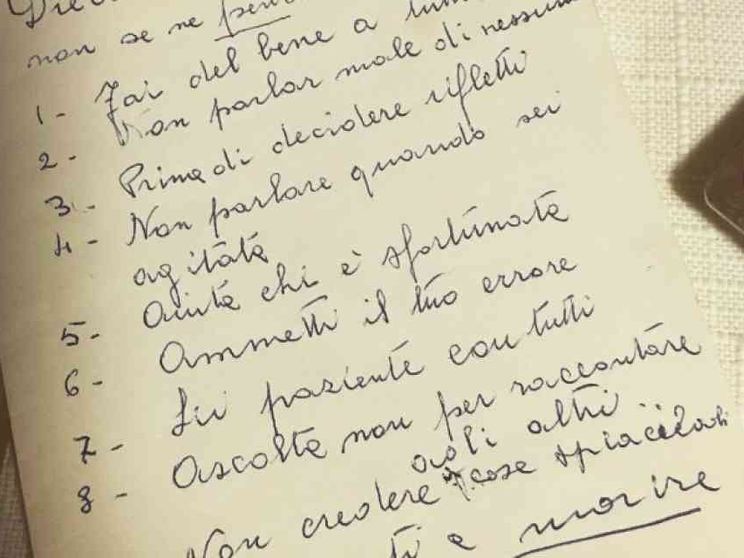 non se ne
1 - Fai del bene a
2 - Non parlar male di nessuno
3 - Prima di decidere rifletti
4 - Non parlare quando sei
agitata
5 - Aiuta chi è sfortunata
6 - Ammetti il tuo errore
7 - Sii paziente con tutti
8 - Ascolta non per raccontare
agli altri
Non credere cose spiacevoli
morire